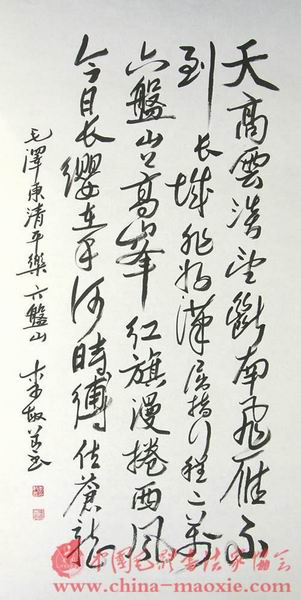 天高雲淡望斷南飛雁不
到长城非好漢屈指行程二萬
六盤山上高峰红旗漫捲西風
今日长纓在手何時縛住蒼龍
毛澤東清平樂六盤山
中国毛體書法家協会
www.china-maoxie.com